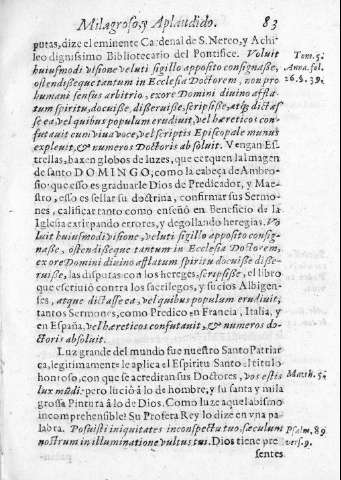 Milagroso, y Aplaudido. 83
putas, dize el eminente Cardenal de S. Nereo, y Achi-
leo dignissimo Bibliotecario del Pontifice. Voluit
huiusmodi visione veluti sigillo apposito consignaße,
ostendißeque tantum in Ecclesia Doctorem, non pro
humani sensus arbitrio, exore Domini divino affla-
tum spiritu, docuiße, dißeruiße, scripsiße, atq; dictaf-
se ea vel quibus populum erudiuit, vel hæreticos con-
futauit cum viua voce, vel scriptis Episcopale munus
expleuit, & numeros Doctoris absoluit. Vengan Es-
trellas, baxen globos de luzes, que cerquen la Imagen
de santo DOMINGO; como la cabeça de Ambro-
sio: que esso es graduarle Dios de Predicador, y Mae-
stro, esso es sellar su doctrina, confirmar sus Sermo-
nes, calificar tanto como enseñò en Beneficio de la
Iglesia extirpando errores, y degollando heregias. Vo-
luit huiusmodi visione, veluti sigillo apposito consig-
naße, ostendißeque tantum in Ecclesia Doctorem,
ex ore Domini divino afflatum spiritu docuiße diße-
ruiße, las disputas con los hereges, scripsiße, el libro
que escriuiò contra los sacrilegos, y sucios Albigen-
ses, atque dictasse ea, vel quibus populum erudiuit,
tantos Sermones, como Predico en Francia, Italia, y
en España, vel hæreticos confutauit, & numeros do-
ctoris absoluit.
Luz grande del mundo fue nuestro Santo Patriar-
ca, legitimamente le aplica el Espiritu Santo el titulo
honroso, con que se acreditan sus Doctores, vos estis
lux mūdi: pero luciò à lo de hombre, y su santa y mila
grossa Pintura à lo de Dios. Como luze aquel abismo
incomprehensible? Su Profeta Rey lo dize en vna pa-
labra. Posuisti iniquitates in conspectu tuo, sæculum
nostrum in illuminatione vultus tui. Dios tiene pre
sentes
Tom. 5.
Anna. fol.
26. §. 39.
Matth. 5.
Psalm. 89
vers. 9.